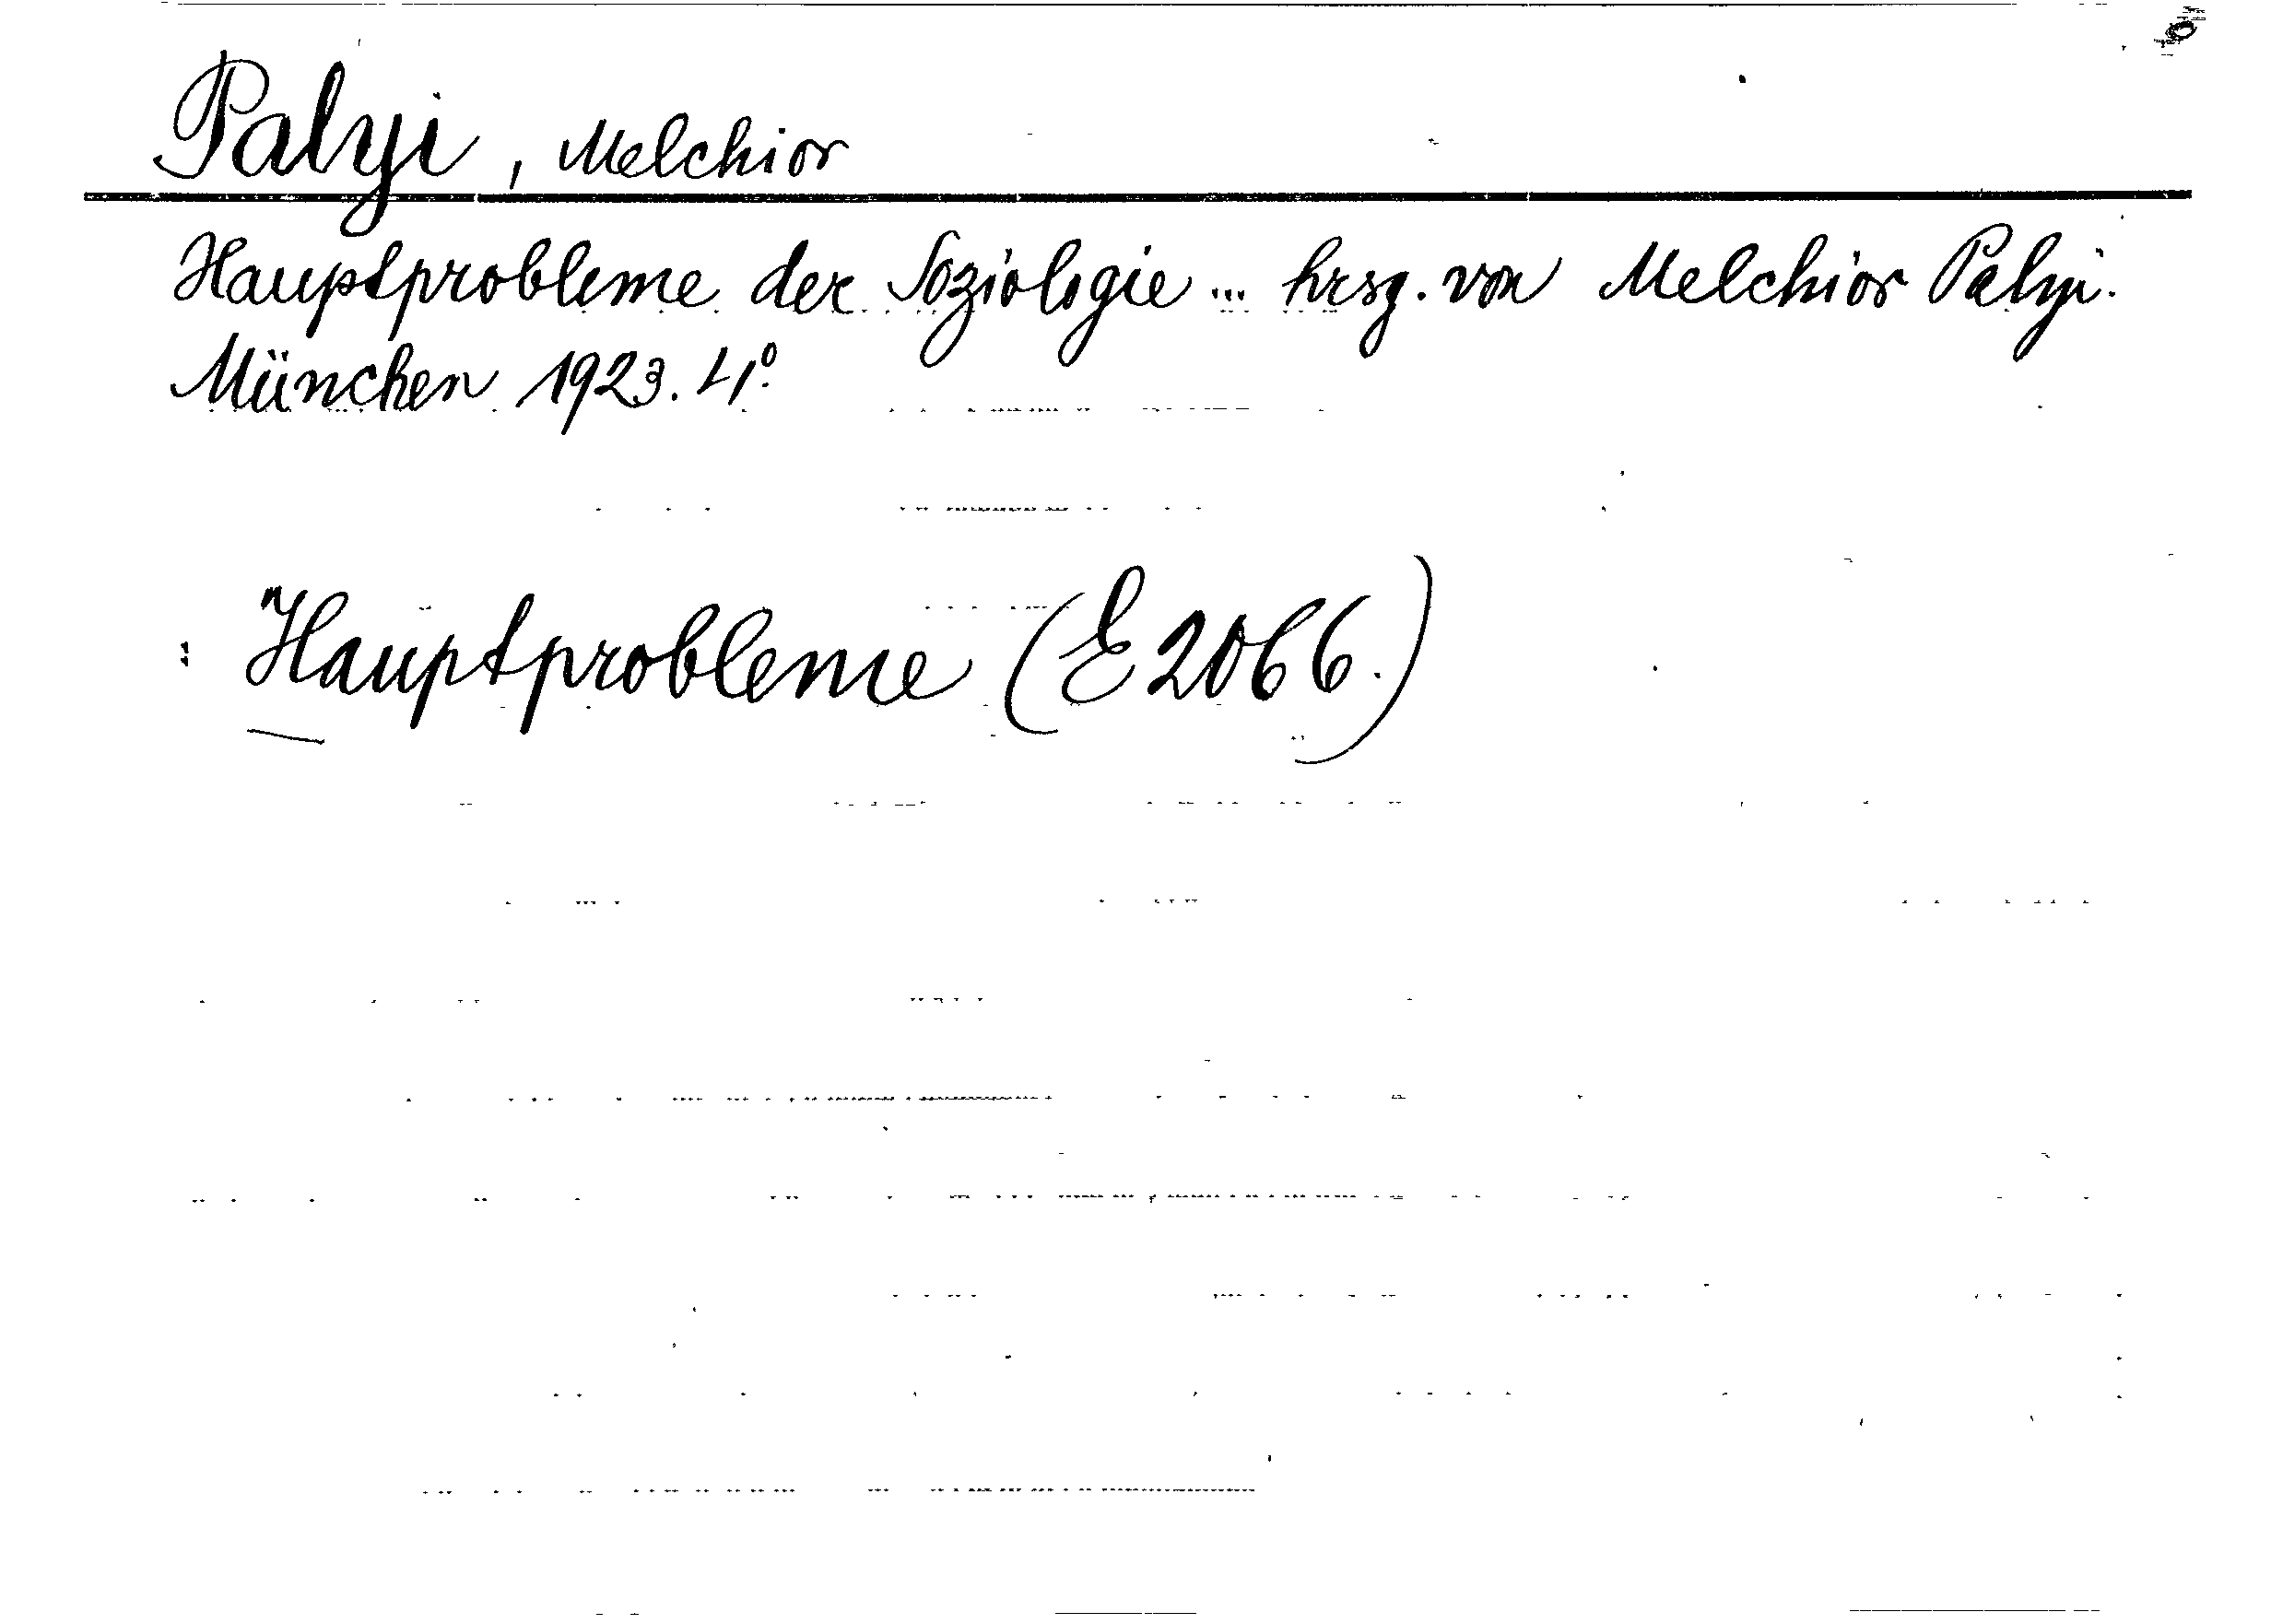 Palyi, Melchior
Hauptprobleme der Soziologie ... hrsg. von Melchior Palyi.
München 1923. 4°.
: Hauptprobleme (E 2066.)